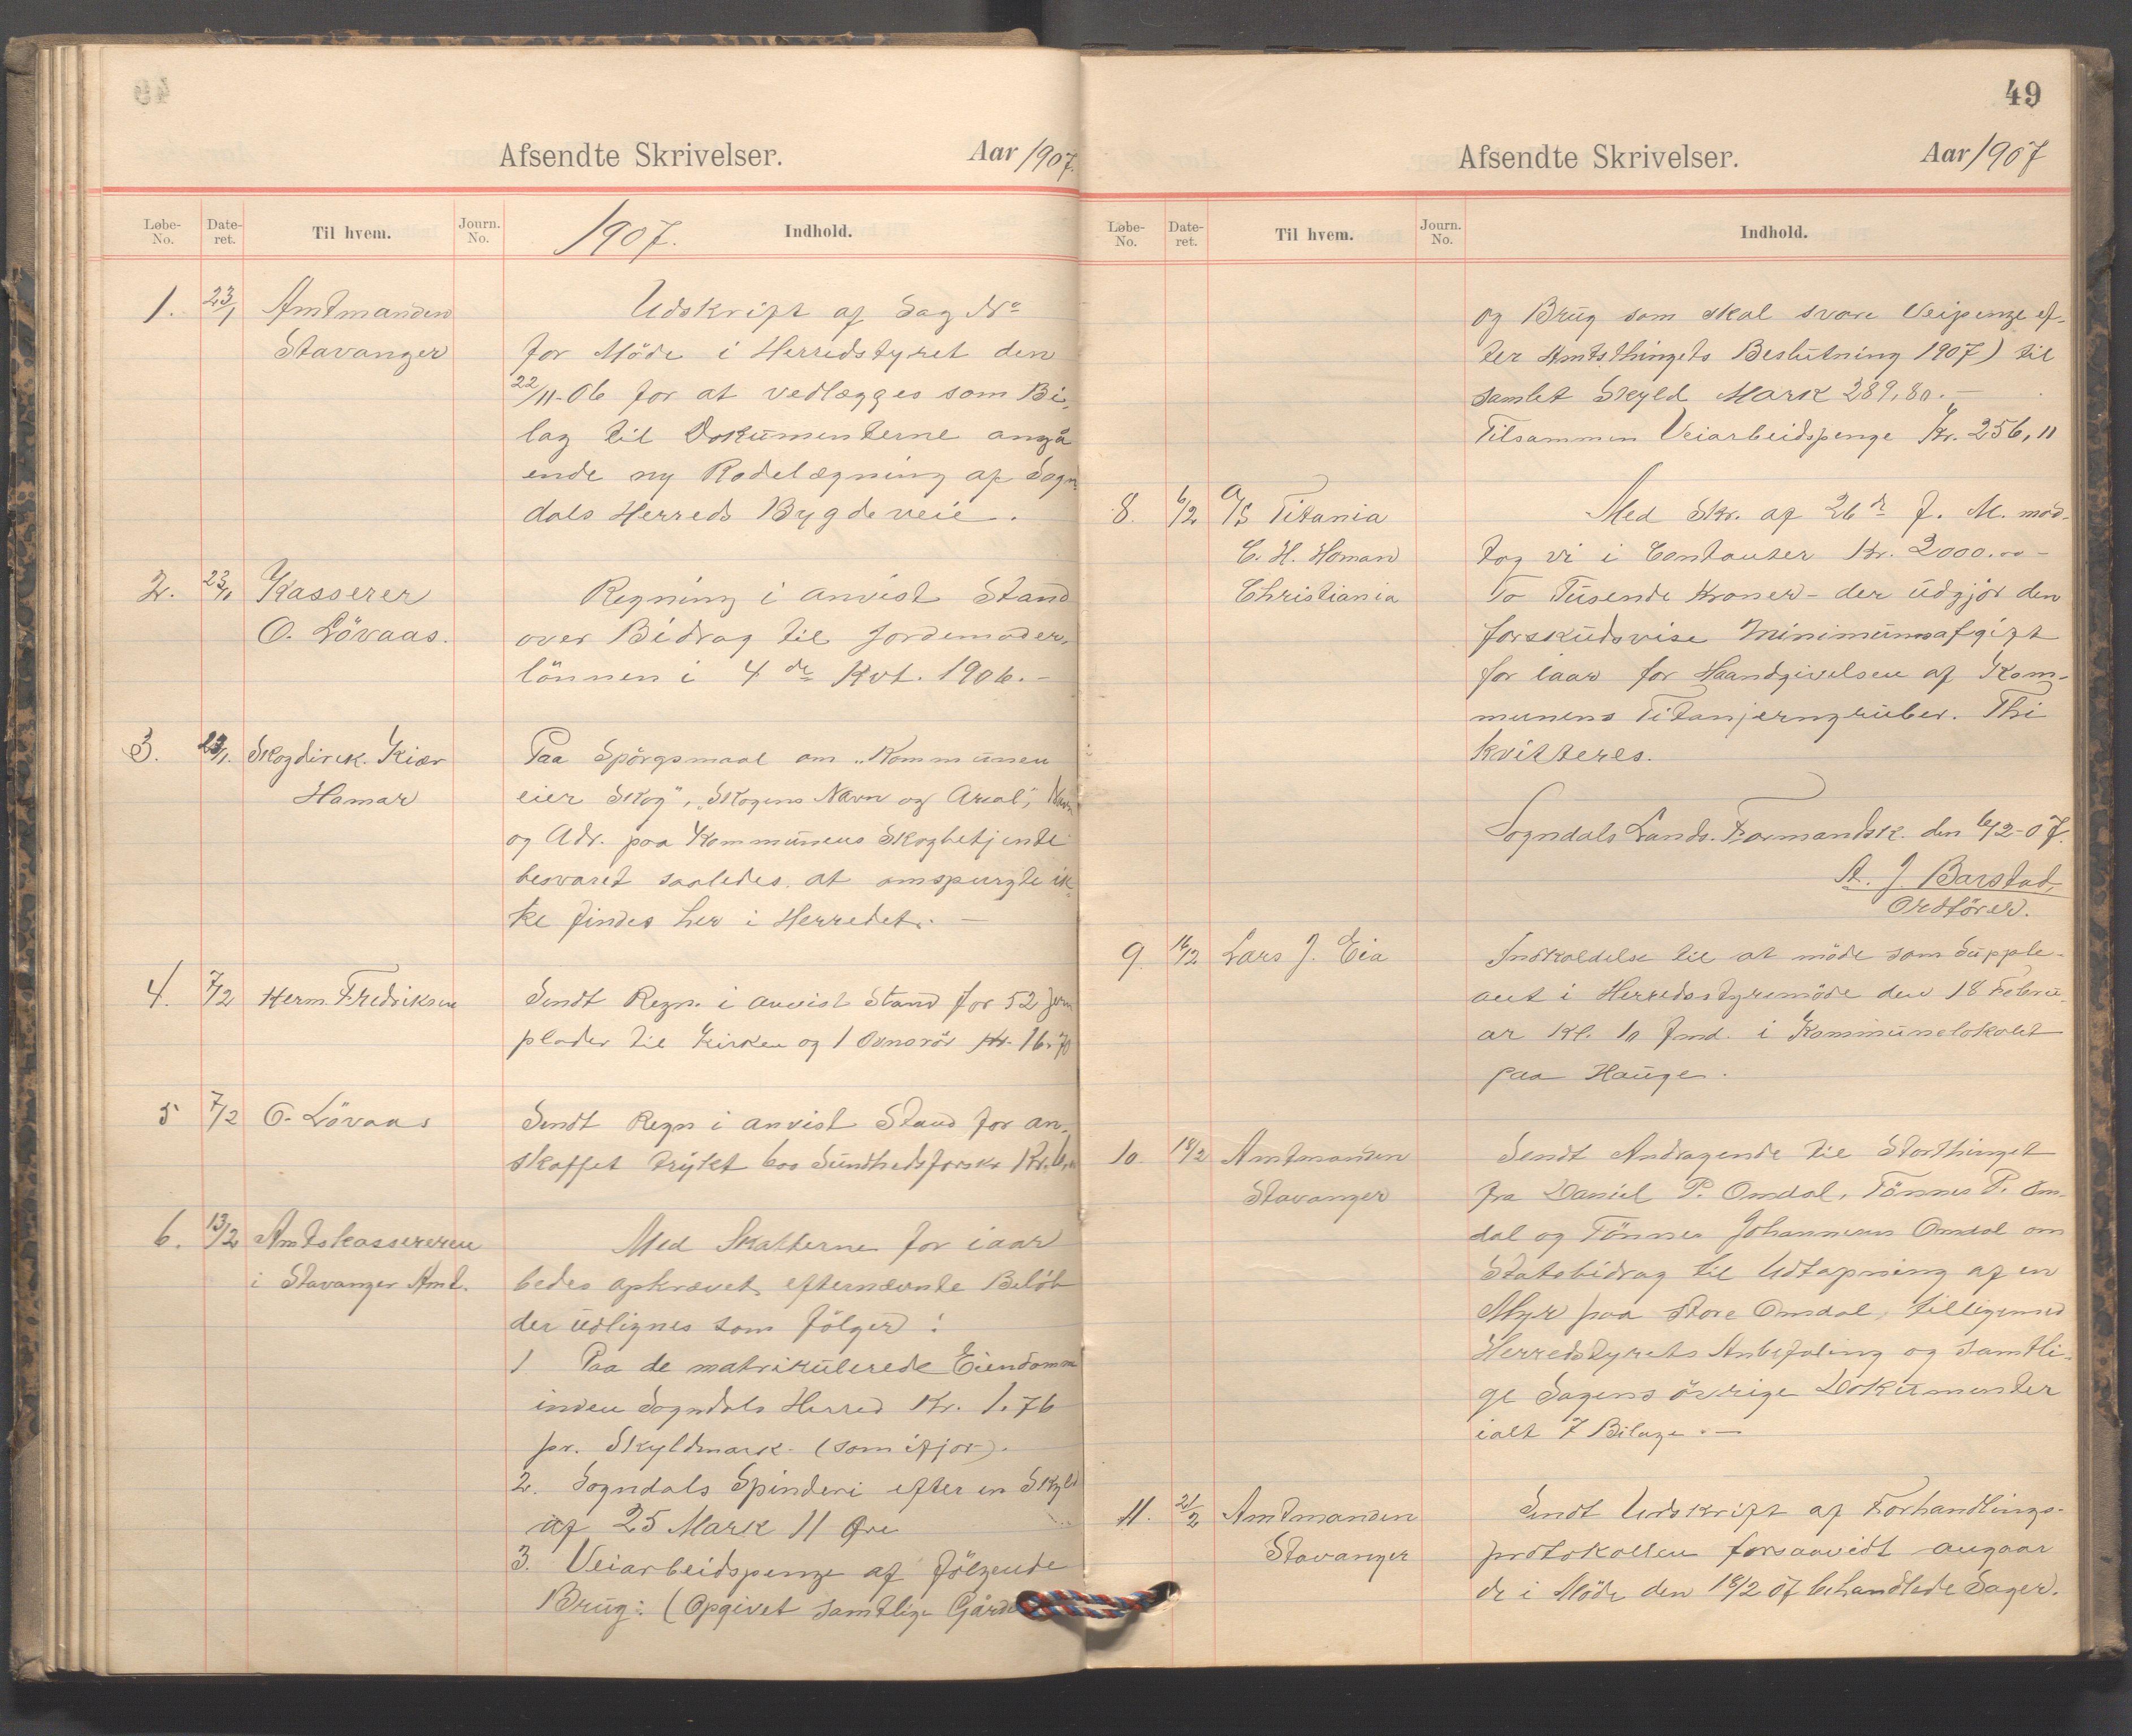 Afsendte Skrivelser. Aar 1907.
Løbe-No. Date-ret. Til hvem. Journ. No. 1907. Indhold.
1. 23/1 Amtmanden Udskrift af Sag No
Stavanger for Möde i Herredstyret den
22/11-06 for at vedlægges som Bi-
lag til Dokumenterne angå
ende ny Rodelægning af Sogn
dals Herreds Bygdeveie.
2. 23/1 Kasserer Regning i anvist Stand
O. Lövaas. over Bidrag til Jordemoder-
lönnen i 4de Kvt. 1906. -
3. 23/1. Skogdirek. Kiær Paa Spörgsmaal om „Kommunen
Hamar eier Skog", „Skogens Navn og Areal", Navn
og Adr. paa Kommunens Skogbetjente
besvaret saaledes at omspurgte ik-
ke findes her i Herredet. -
4. 7/2 Herm. Fredriksen Sendt Regn. i anvist Stand for 52 Jern
plader til Kirken og 1 Ovnsrör Kr. 16.70
5 7/2 O. Lövaas Sendt Regn i anvist Stand for an-
skaffet trykt 600 Sundhedsforskr Kr. 6,
6. 13/2 Amtskassereren Med Skatterne for iaar
i Stavanger Amt. bedes opkrævet efternævnte Belöb
der udlignes som fölger:
1 Paa de matrikulerede Eiendomme
inden Sogndals Herred Kr. 1.76
pr. Skyldmark - (som ifjor).
2. Sogndals Spinderi efter en Skyld
af 25 Mark 11 Øre
3. Veiarbeidspenge af fölgende
Brug: (Opgivet samtlige Gårde
49
Afsendte Skrivelser. Aar 1907
Løbe-No. Date-ret. Til hvem. Journ. No. Indhold.
og Brug som skal svare Veipenge ef-
ter Amtsthingets Beslutning 1907) til
samlet Skyld Mark 289,80. -
Tilsammen Veiarbeidspenge Kr. 256,11
8. 6/2 A/S Titania Med Skr. af 26de f. M. mod-
C. H. Homan tog vi i Contanter Kr. 2000.00 -
Christiania To Tusende Kroner - der udgjör den
forskudsvise Minimumsafgift
for iaar for Haandgivelsen af Kom-
munens Titanjerngruber. Thi
kvitteres.
Sogndals Lands. Formandsk. den 6/2-07.
A. J. Barstad,
Ordförer.
9. 16/2 Lars J. Eia Indkaldelse til at möde som Supple-
ant i Herredsstyremöde den 18 Febru-
ar Kl. 10 fmd. i Kommunelokalet
paa Hauge.
10. 18/2 Amtmanden Sendt Andragende til Storthinget
Stavanger fra Daniel P. Omdal, Tönnes P. Om-
dal og Tönnes Johannesen Omdal om
Statsbidrag til Udtapning af en
Myr paa Store Omdal, tilligemed
Herredstyrets Anbefaling og samtli-
ge Sagens övrige Dokumenter
ialt 7 Bilage. -
11. 21/2 Amtmanden Sendt Udskrift af Forhandlings-
Stavanger protokollen forsaavidt angaar
de i Möde den 18/2 07 behandlede Sager.